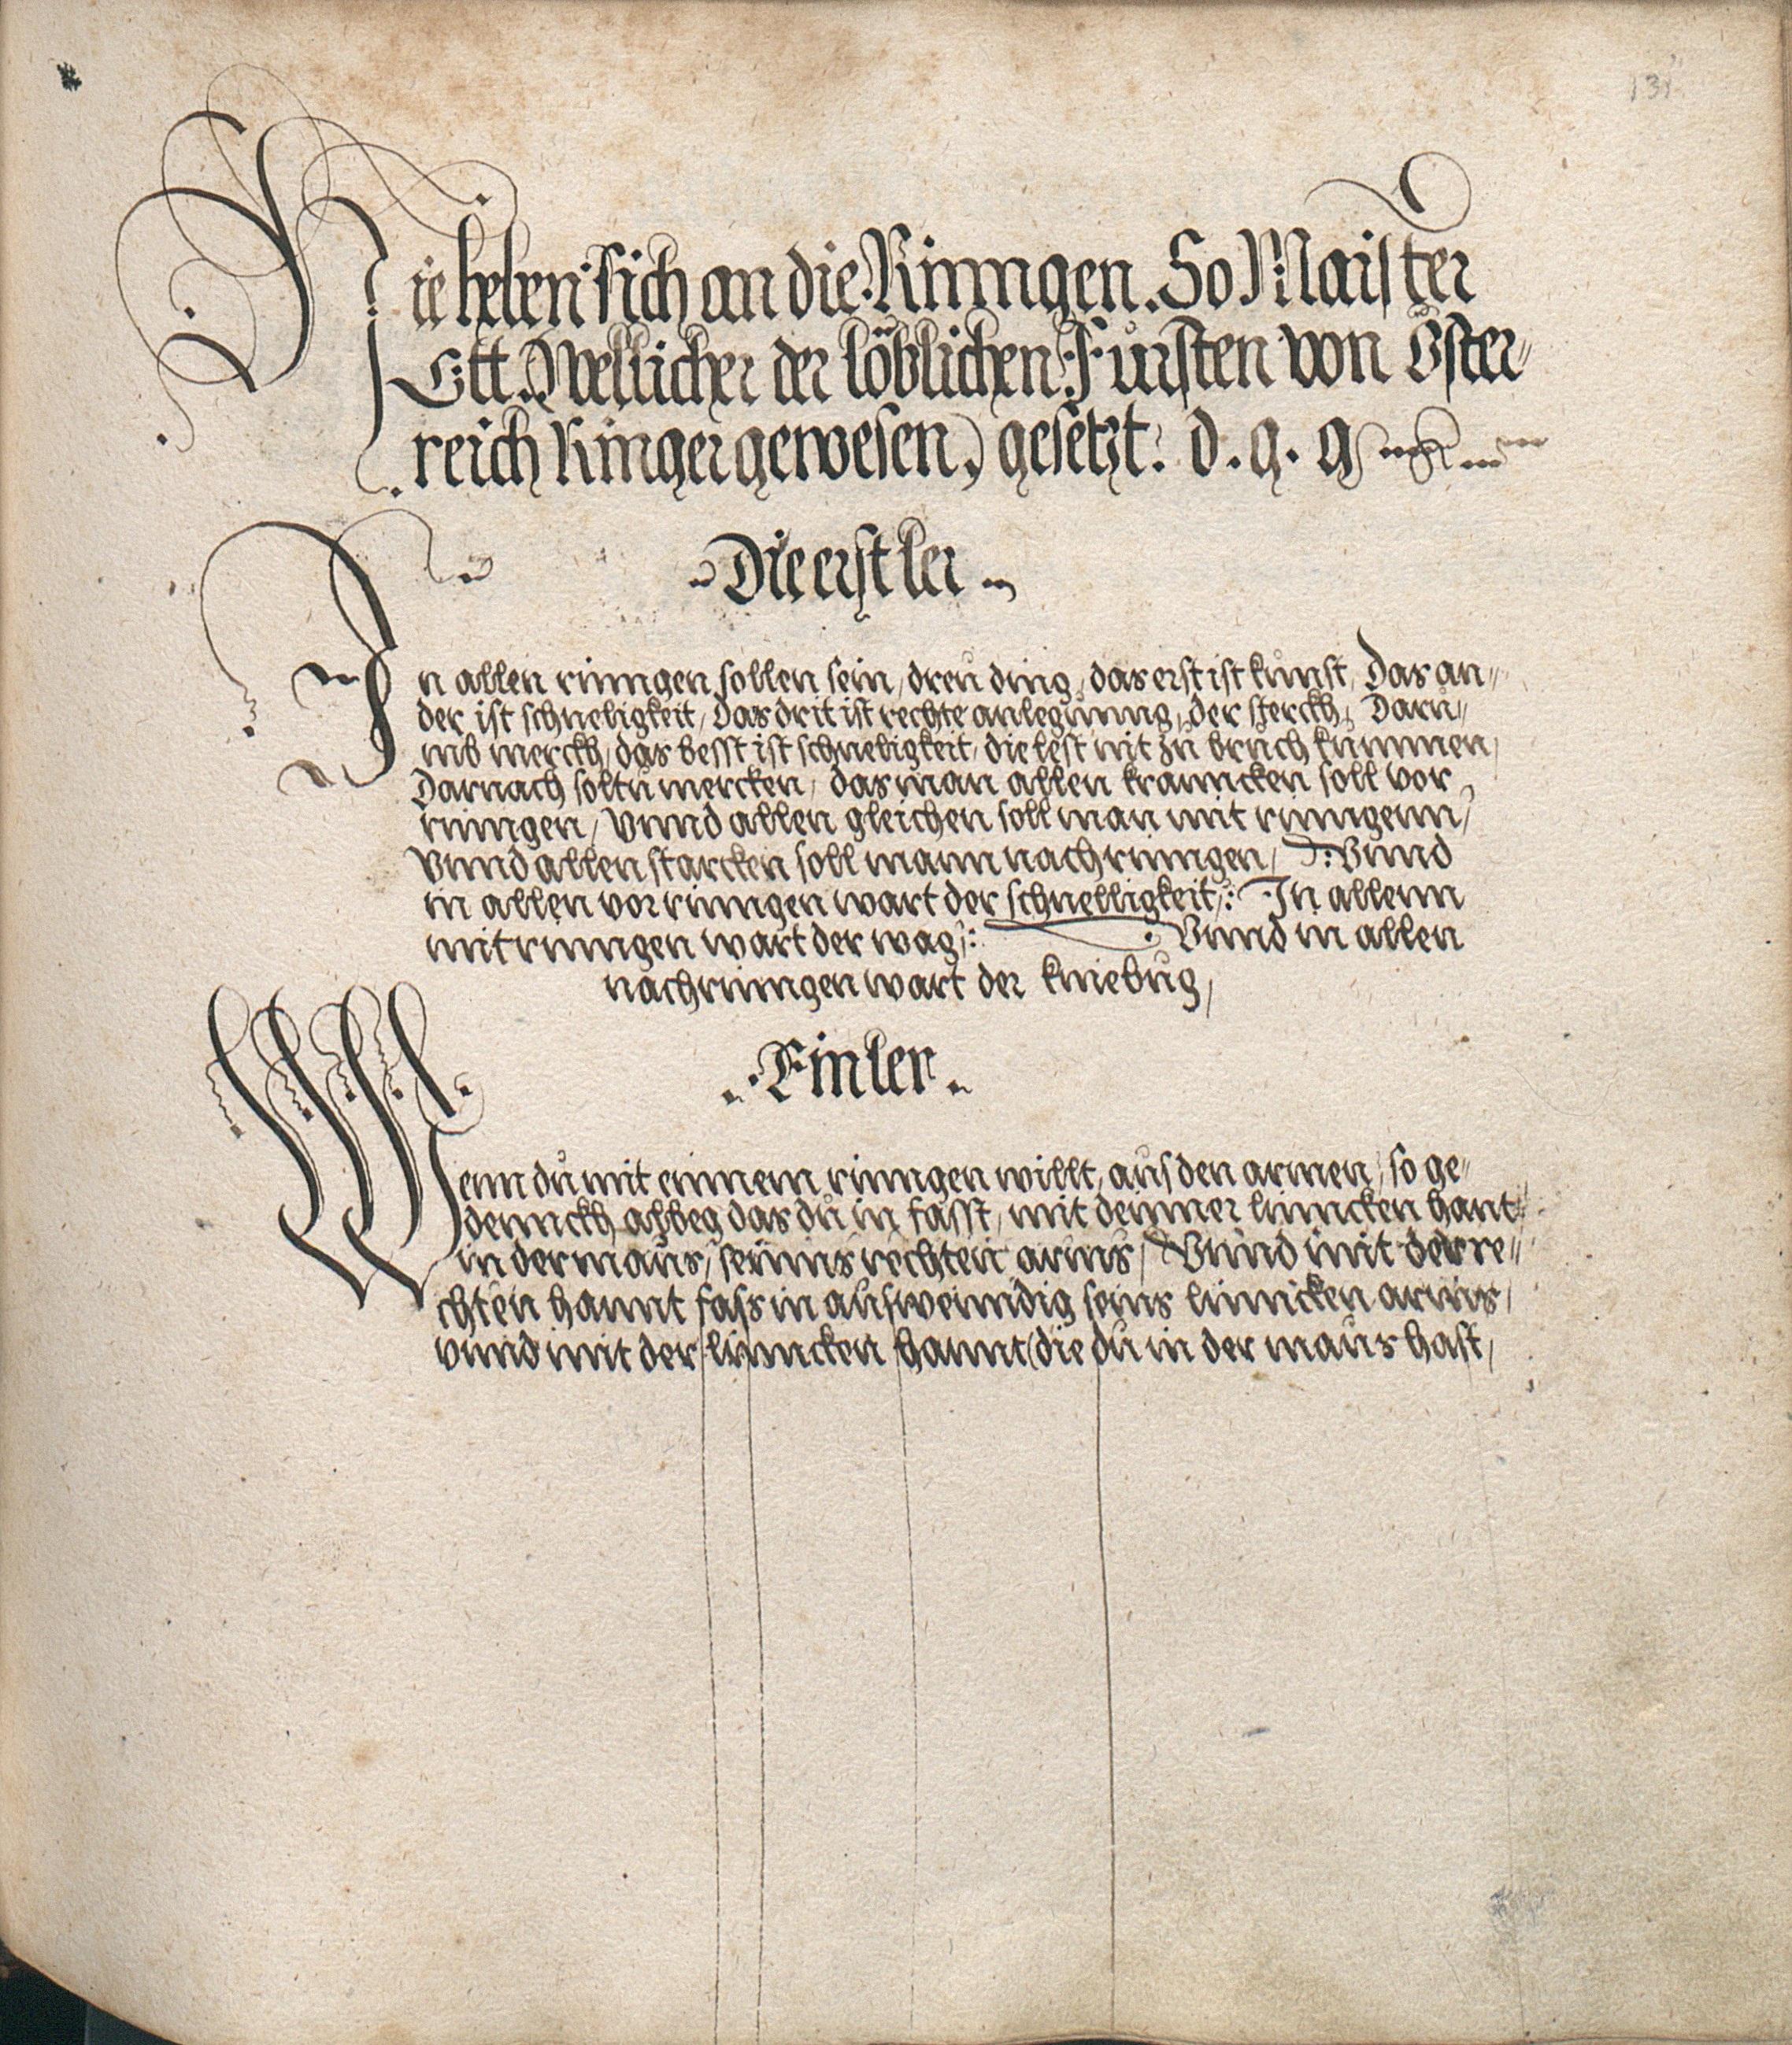 131
Hie heben sich an die Rinngen. So Maister
Ott. Wellicher der löblichen Fürsten von Öster=
reich Ringer gewesen, gesetzt. d. g. g
Die erst ler
In allen rinngen sollen sein, dreü ding, das erst ist kunst, Das an=
der ist schnelligkeit, Das drit ist rechte anlegunng, der sterckh, Daru=
mb merckh, das besst ist schnelligkeit, die lest nit zu bruch kummen,
Darnach soltu mercken, das man allen kranncken soll vor
rinngen, Vnnd allen gleichen soll man mit rinngenn,
Vnnd allen starcken soll mann nach rinngen, Vnnd
in allen vor rinngen wart der schnelligkeit, In allenn
mit rinngen wart der wag, Vnnd in allen
nach rinngen wart der kniebug,
Ein ler
Wenn du mit einnem rinngen willt, aus den armen, so ge=
denckh allbeg das du in fasst, mit deinner linncken hant
in der maus, seinns rechten arms, Vnnd mit der re=
chten hannt fass in auswenndig seins linncken arms,
vnnd mit der linncken hannt (die du in der maus hast,